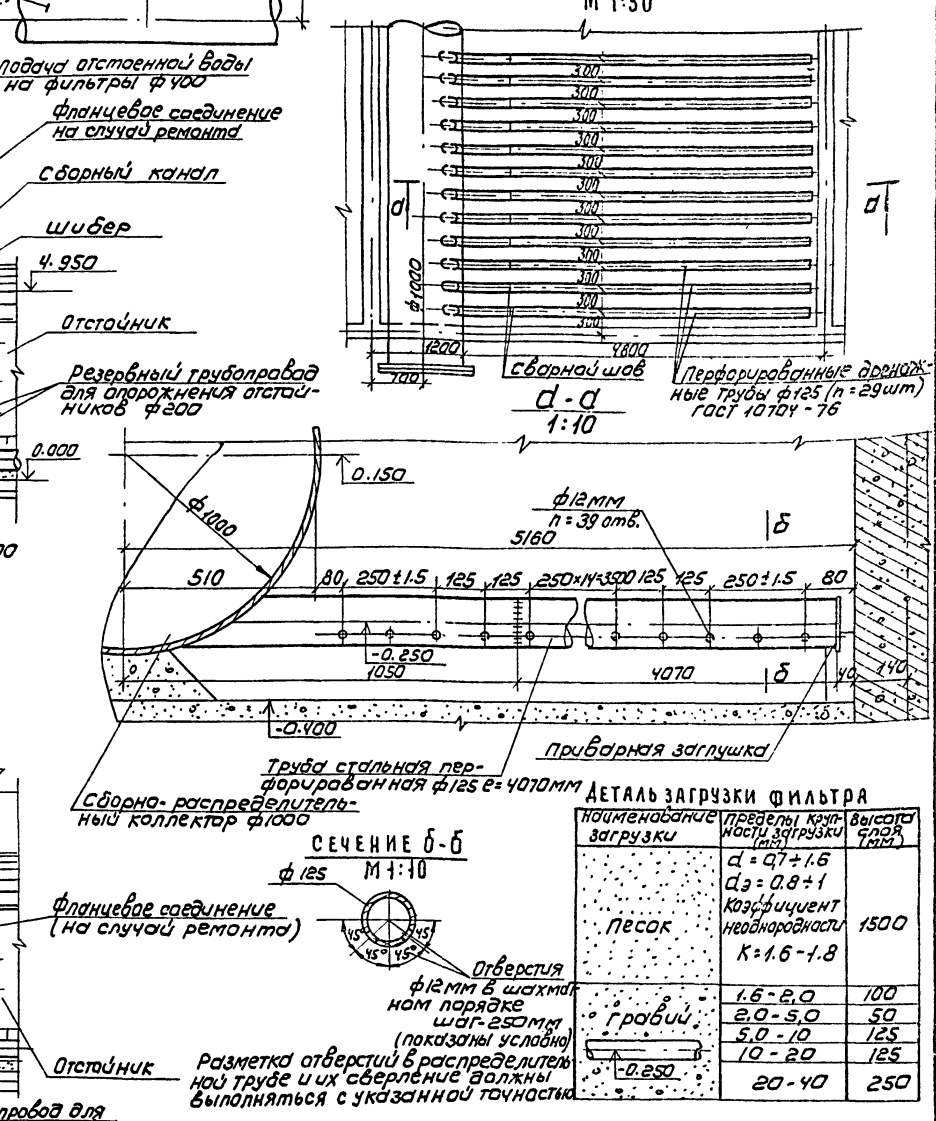 М 1:50
подача отстоенной воды
на фильтры ф400
Фланцевое соединение
на случай ремонта
Сборный канал
шибер
4.950
Отстойник
Резервный трубопровод
для опорожнения отстой-
ников ф200
0.000
300
300
300
300
300
300
300
300
300
300
300
300
d
d
ф1000
1200
4800
700
Сварной шов
Перфорированные дренаж-
ные трубы ф125 (n=29шт)
гост 10704-76
d-d
1:10
0.150
ф1000
ф12мм
n=39 отв.
5160
б
510
80 250±1.5 125 125 250×14=3500 125 125 250±1.5 80
-0.250
1050
4070
б
40
140
-0.400
приварная заглушка
Труба стальная пер-
форированная ф125 е=4070мм
Сборно-распределитель-
ный коллектор ф1000
СЕЧЕНИЕ б-б
М 1:10
ф125
45° 45° 45° 45°
Отверстия
ф12мм в шахмат
ном порядке
шаг-250мм
(показаны условно)
Фланцевое соединение
(на случай ремонта)
Отстойник
Разметка отверстий в распределитель
ной трубе и их сверление должны
выполняться с указанной точностью
провод для
ДЕТАЛЬ ЗАГРУЗКИ ФИЛЬТРА
наименование загрузки
пределы круп-
ности загрузки
(мм)
высота
слоя
(мм)
песок
d=0,7÷1.6
dэ=0.8÷1
Коэффициент
неоднородности
К=1.6-1.8
1500
гравий
-0.250
1.6-2,0 100
2.0-5,0 50
5,0-10 125
10-20 125
20-40 250